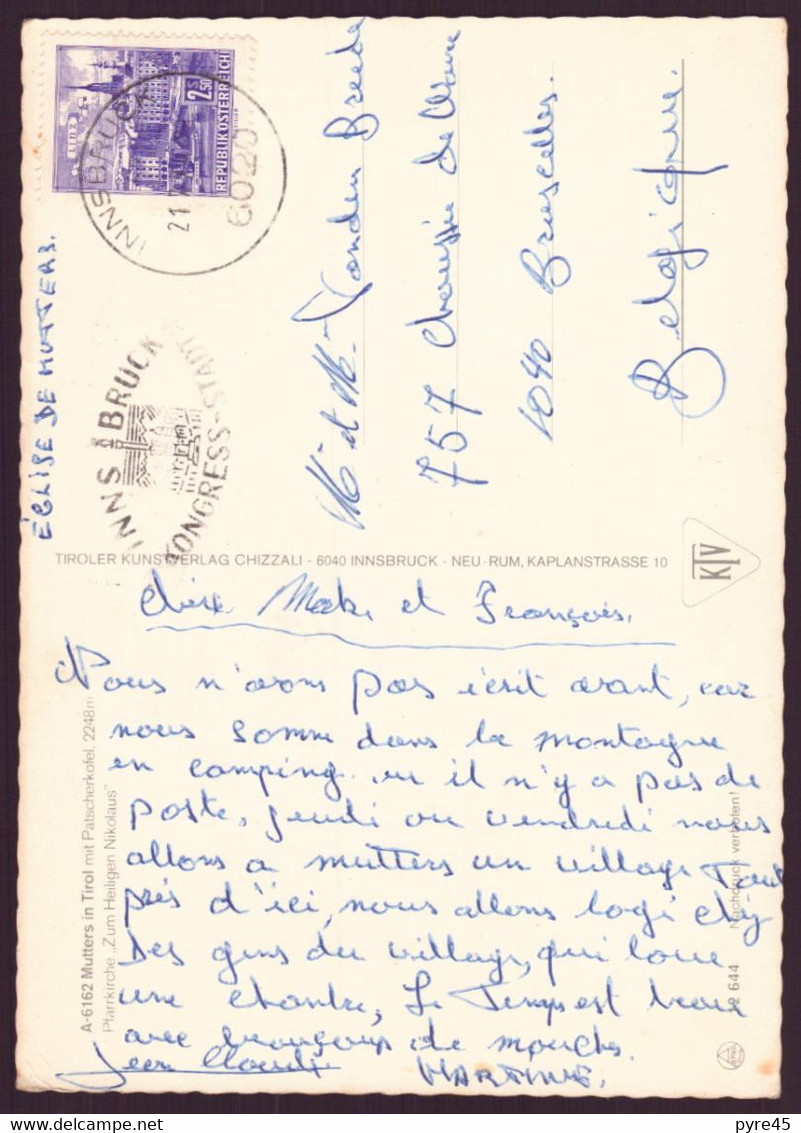 LINZ
2.50 S
REPUBLIK ÖSTERREICH
INNSBRUCK
21
6020
INNSBRUCK
KONGRESS-STADT
ÉGLISE DE MUTTERS.
Mr et Me Vanden Breede
757 Chaussée de Wavre
1040 Bruxelles.
Belgique.
TIROLER KUNSTVERLAG CHIZZALI - 6040 INNSBRUCK - NEU-RUM, KAPLANSTRASSE 10
KTV
A-6162 Mutters in Tirol mit Patscherkofel, 2248m
Pfarrkirche „Zum Heiligen Nikolaus"
644 Nachdruck verboten!
Chère et François.
Nous n'avons pas écrit avant, car
nous somme dans la montagne
en camping ou il n'y a pas de
poste, jeudi ou vendredi nous
allons a mutters un village tout
près d'ici, nous allons logé chez
des gens du village, qui loue
une chambre, Le temps est beau
avec beaucoup de mouches.
Jean Claude MARTINE.
pyre45